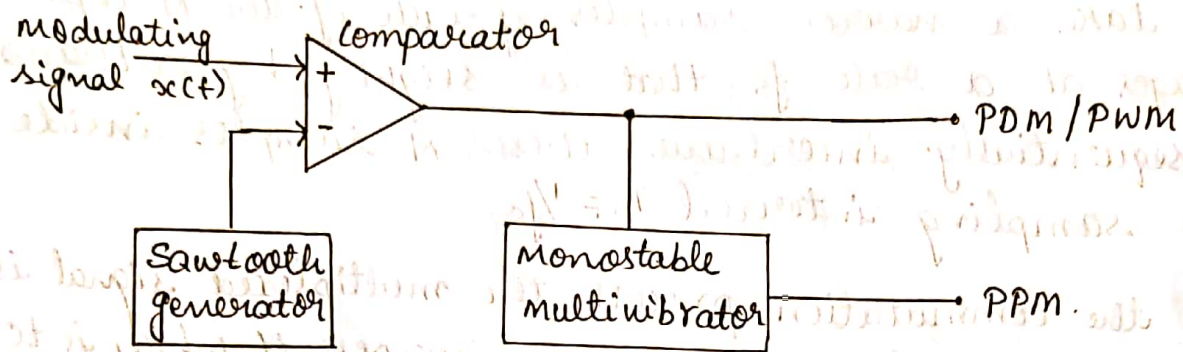 modulating
signal x(t)
comparator
+
-
PDM / PWM
Sawtooth
generator
Monostable
multivibrator
PPM.